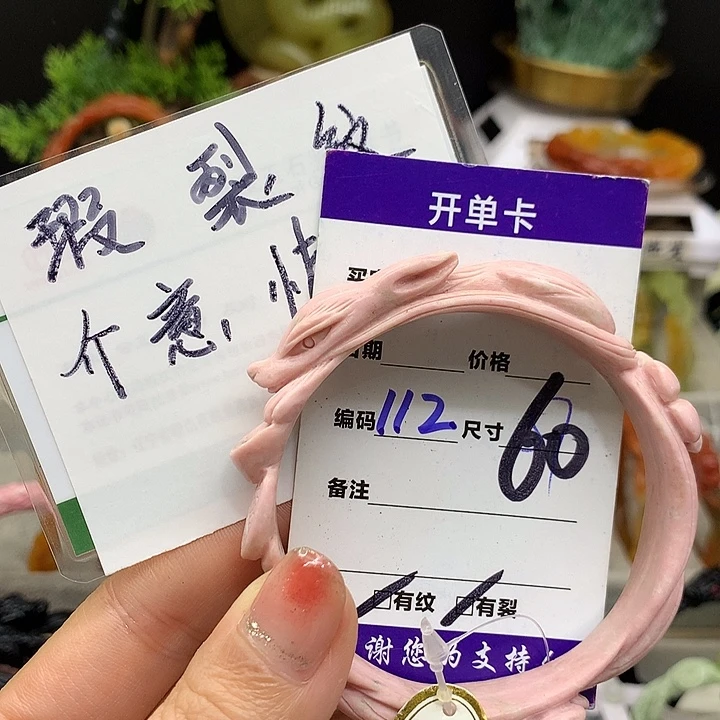 瑕 裂 纹
介意 慎
开单卡
买
日期 价格
编码 112 尺寸 60
备注
有纹 有裂
谢您的支持!